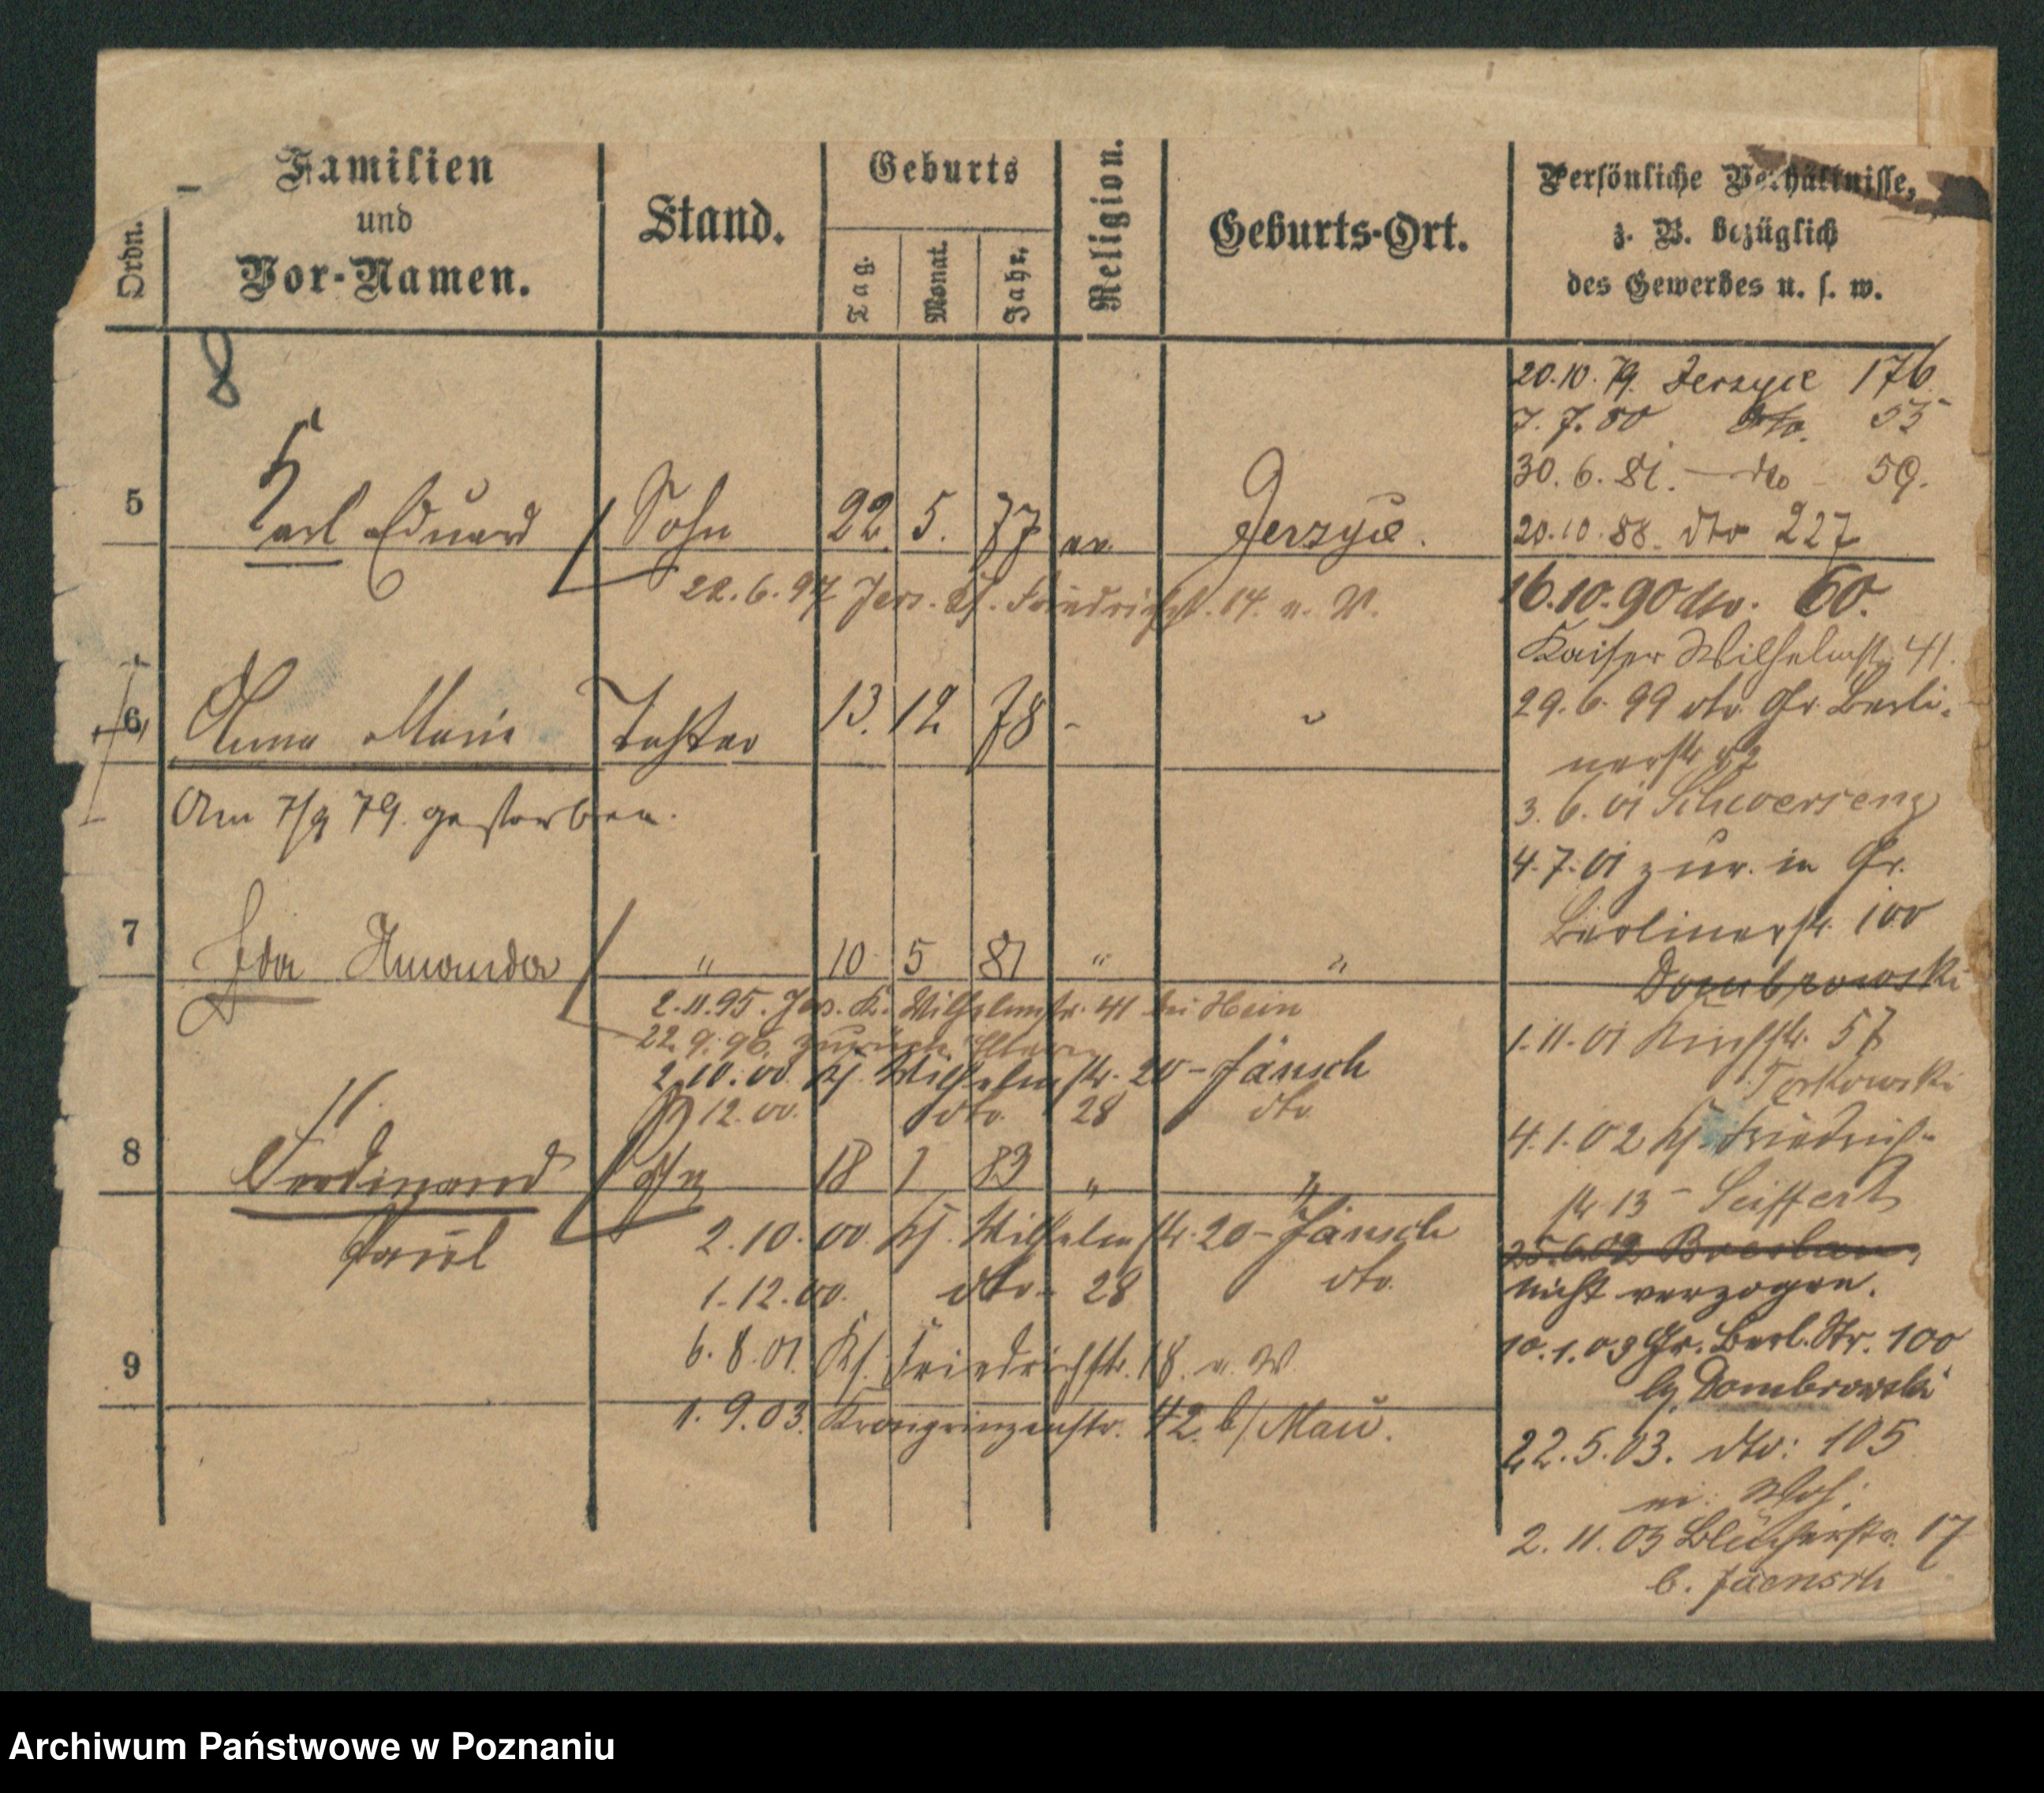 Ordn.
Familien
und
Vor-Namen.
Stand.
Geburts
Tag.
Monat.
Jahr.
Religion.
Geburts-Ort.
Persönliche Verhältnisse,
z. B. bezüglich
des Gewerbes u. s. w.
8
5 Karl Eduard Sohn 22. 5. 77 ev. Jerzyce.
22.6.97 Jers. Ks. Friedrichst. 14. n. W.
6 Anna Marie Tochter 13. 12 78 - "
Am 7/9 79. gestorben.
7 Ida Amanda " 10 5 81 " "
2.11.95. Jers. K. Wilhelmstr. 41 bei Hein
22.9.96. zurück Eltern
2.10.00. Ks. Wilhelmstr. 20 - Jänsch
12.00. dto. 28 dto.
8 Ferdinand Sohn 18 1 83 " "
Paul
2.10.00 Ks. Wilhelmstr. 20 - Jänsch
1.12.00. dto. 28 dto.
6.8.01. Ks. Friedrichstr. 18. n. W.
9
1.9.03. Kronprinzenstr. 42. b/ Mau.
20.10.79. Jerzyce 176
7.7.80 dto. 55
30.6.81. - dto - 59.
20.10.88. dto 227
16.10.90 dto. 60.
Kaiser Wilhelmst. 41.
29.6.99 dto Gr. Berli-
nerstr
3.6.01 Schwersenz
4.7.01 zur. in Gr.
Berlinerstr. 100
Dombrowski
1.11.01 Kirchstr. 57
Torkowski
4.1.02 Ks. Friedrich-
str 13 - Seiffert
25.6.02 Breslau,
nicht verzogen.
10.1.03 Gr. Berl. Str. 100
bg Dombrowski
22.5.03. dto: 105
2.11.03 Blücherstr. 17
b. Jaensch
Archiwum Państwowe w Poznaniu